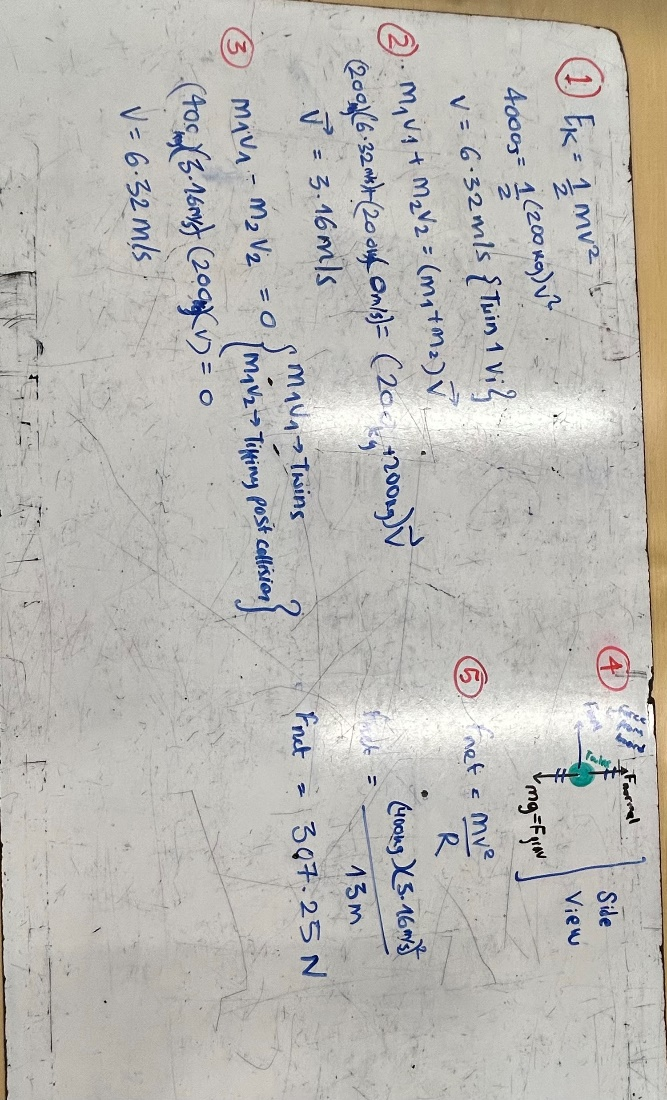 ① Eₖ = 1/2 mv²
4000J = 1/2 (200kg) v²
v = 6.32 m/s {Twin 1 Vi}
② m₁v₁ + m₂v₂ = (m₁+m₂) v⃗
(200kg)(6.32m/s)+(200kg)(0m/s) = (200kg+200kg) v⃗
v⃗ = 3.16m/s
③ m₁v₁ - m₂v₂ = 0 { m₁v₁ → Twins
m₁v₂ → Tipping post collision }
(400kg)(3.16m/s) - (200kg)(v) = 0
v = 6.32 m/s
④ Side View
Fnormal
Twins
mg = Fgrav
⑤ Fnet = mv²/R
Fnet = (400kg)(3.16m/s)²/13m
Fnet = 307.25 N